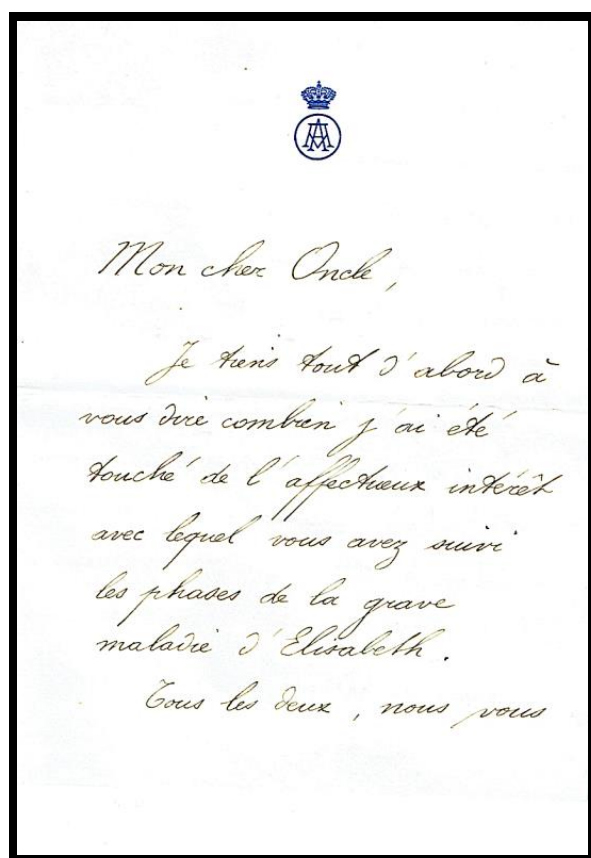 Mon cher Oncle,
Je tiens tout d'abord à
vous dire combien j'ai été
touché de l'affectueux intérêt
avec lequel vous avez suivi
les phases de la grave
maladie d'Elisabeth.
Tous les deux, nous vous